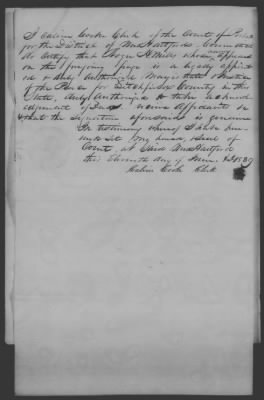 I Calvin Cook Clerk of the Court of Probate
for the District of New Hartford, Connecticut
do Certify that Roger H Mills whose name appears
on the foregoing page is a legally appoint
ed & duly Authorized Magistrate Justice
of the Peace for Litchfield County in this
State, duly Authorized to take acknowl
edgment of Deeds & take Affidavits &c
& that the Signature aforesaid is genuine
In testimony whereof I have here
unto Set my hand & Seal of
Court, at Said New Hartford
this Eleventh day of June
Calvin Cook Clerk